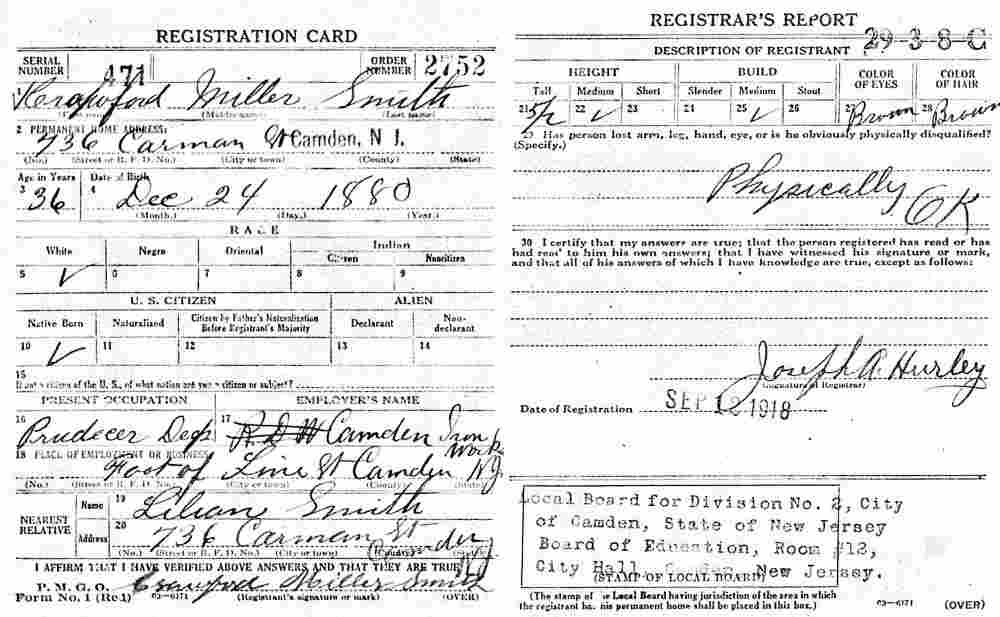 REGISTRATION CARD
SERIAL NUMBER 471
ORDER NUMBER 2752
1 Crawford Miller Smith
(Middle name) (Last name)
2 PERMANENT HOME ADDRESS:
736 Carman St Camden, N J.
(No.) (Street or R. F. D. No.) (City or town) (County) (State)
Age in Years Date of Birth
3 36 4 Dec 24 1880
(Month.) (Day.) (Year.)
RACE
White Negro Oriental Indian
Citizen Noncitizen
5 ✓ 6 7 8 9
U. S. CITIZEN ALIEN
Native Born Naturalized Citizen by Father's Naturalization Before Registrant's Majority Declarant Non-declarant
10 ✓ 11 12 13 14
15
If not a citizen of the U. S., of what nation are you a citizen or subject?
PRESENT OCCUPATION EMPLOYER'S NAME
16 17 R. D. W Camden Iron Works
18 PLACE OF EMPLOYMENT OR BUSINESS
Foot of Line St Camden NJ
(No.) (Street or R. F. D. No.) (City or town) (County) (State)
NEAREST RELATIVE
Name 19 Lilian Smith
Address 20 736 Carman St Camden
(No.) (Street or R. F. D. No.) (City or town) (County) (State)
I AFFIRM THAT I HAVE VERIFIED ABOVE ANSWERS AND THAT THEY ARE TRUE
P. M. G. O. Crawford Miller Smith
Form No. 1 (Red) 03—6171 (Registrant's signature or mark) (OVER)
REGISTRAR'S REPORT
29-3-8-C
DESCRIPTION OF REGISTRANT
HEIGHT BUILD COLOR OF EYES COLOR OF HAIR
Tall Medium Short Slender Medium Stout
21 22 ✓ 23 24 25 ✓ 26 27 Brown 28 Brown
29 Has person lost arm, leg, hand, eye, or is he obviously physically disqualified?
(Specify.)
Physically OK
30 I certify that my answers are true; that the person registered has read or has
had read to him his own answers; that I have witnessed his signature or mark,
and that all of his answers of which I have knowledge are true, except as follows:
Joseph A. Hurley
(Signature of Registrar)
Date of Registration SEP 12 1918
Local Board for Division No. 2, City
of Camden, State of New Jersey
Board of Education, Room #12,
City Hall, Camden, New Jersey.
(STAMP OF LOCAL BOARD)
(The stamp of the Local Board having jurisdiction of the area in which
the registrant has his permanent home shall be placed in this box.)
03—6171 (OVER)